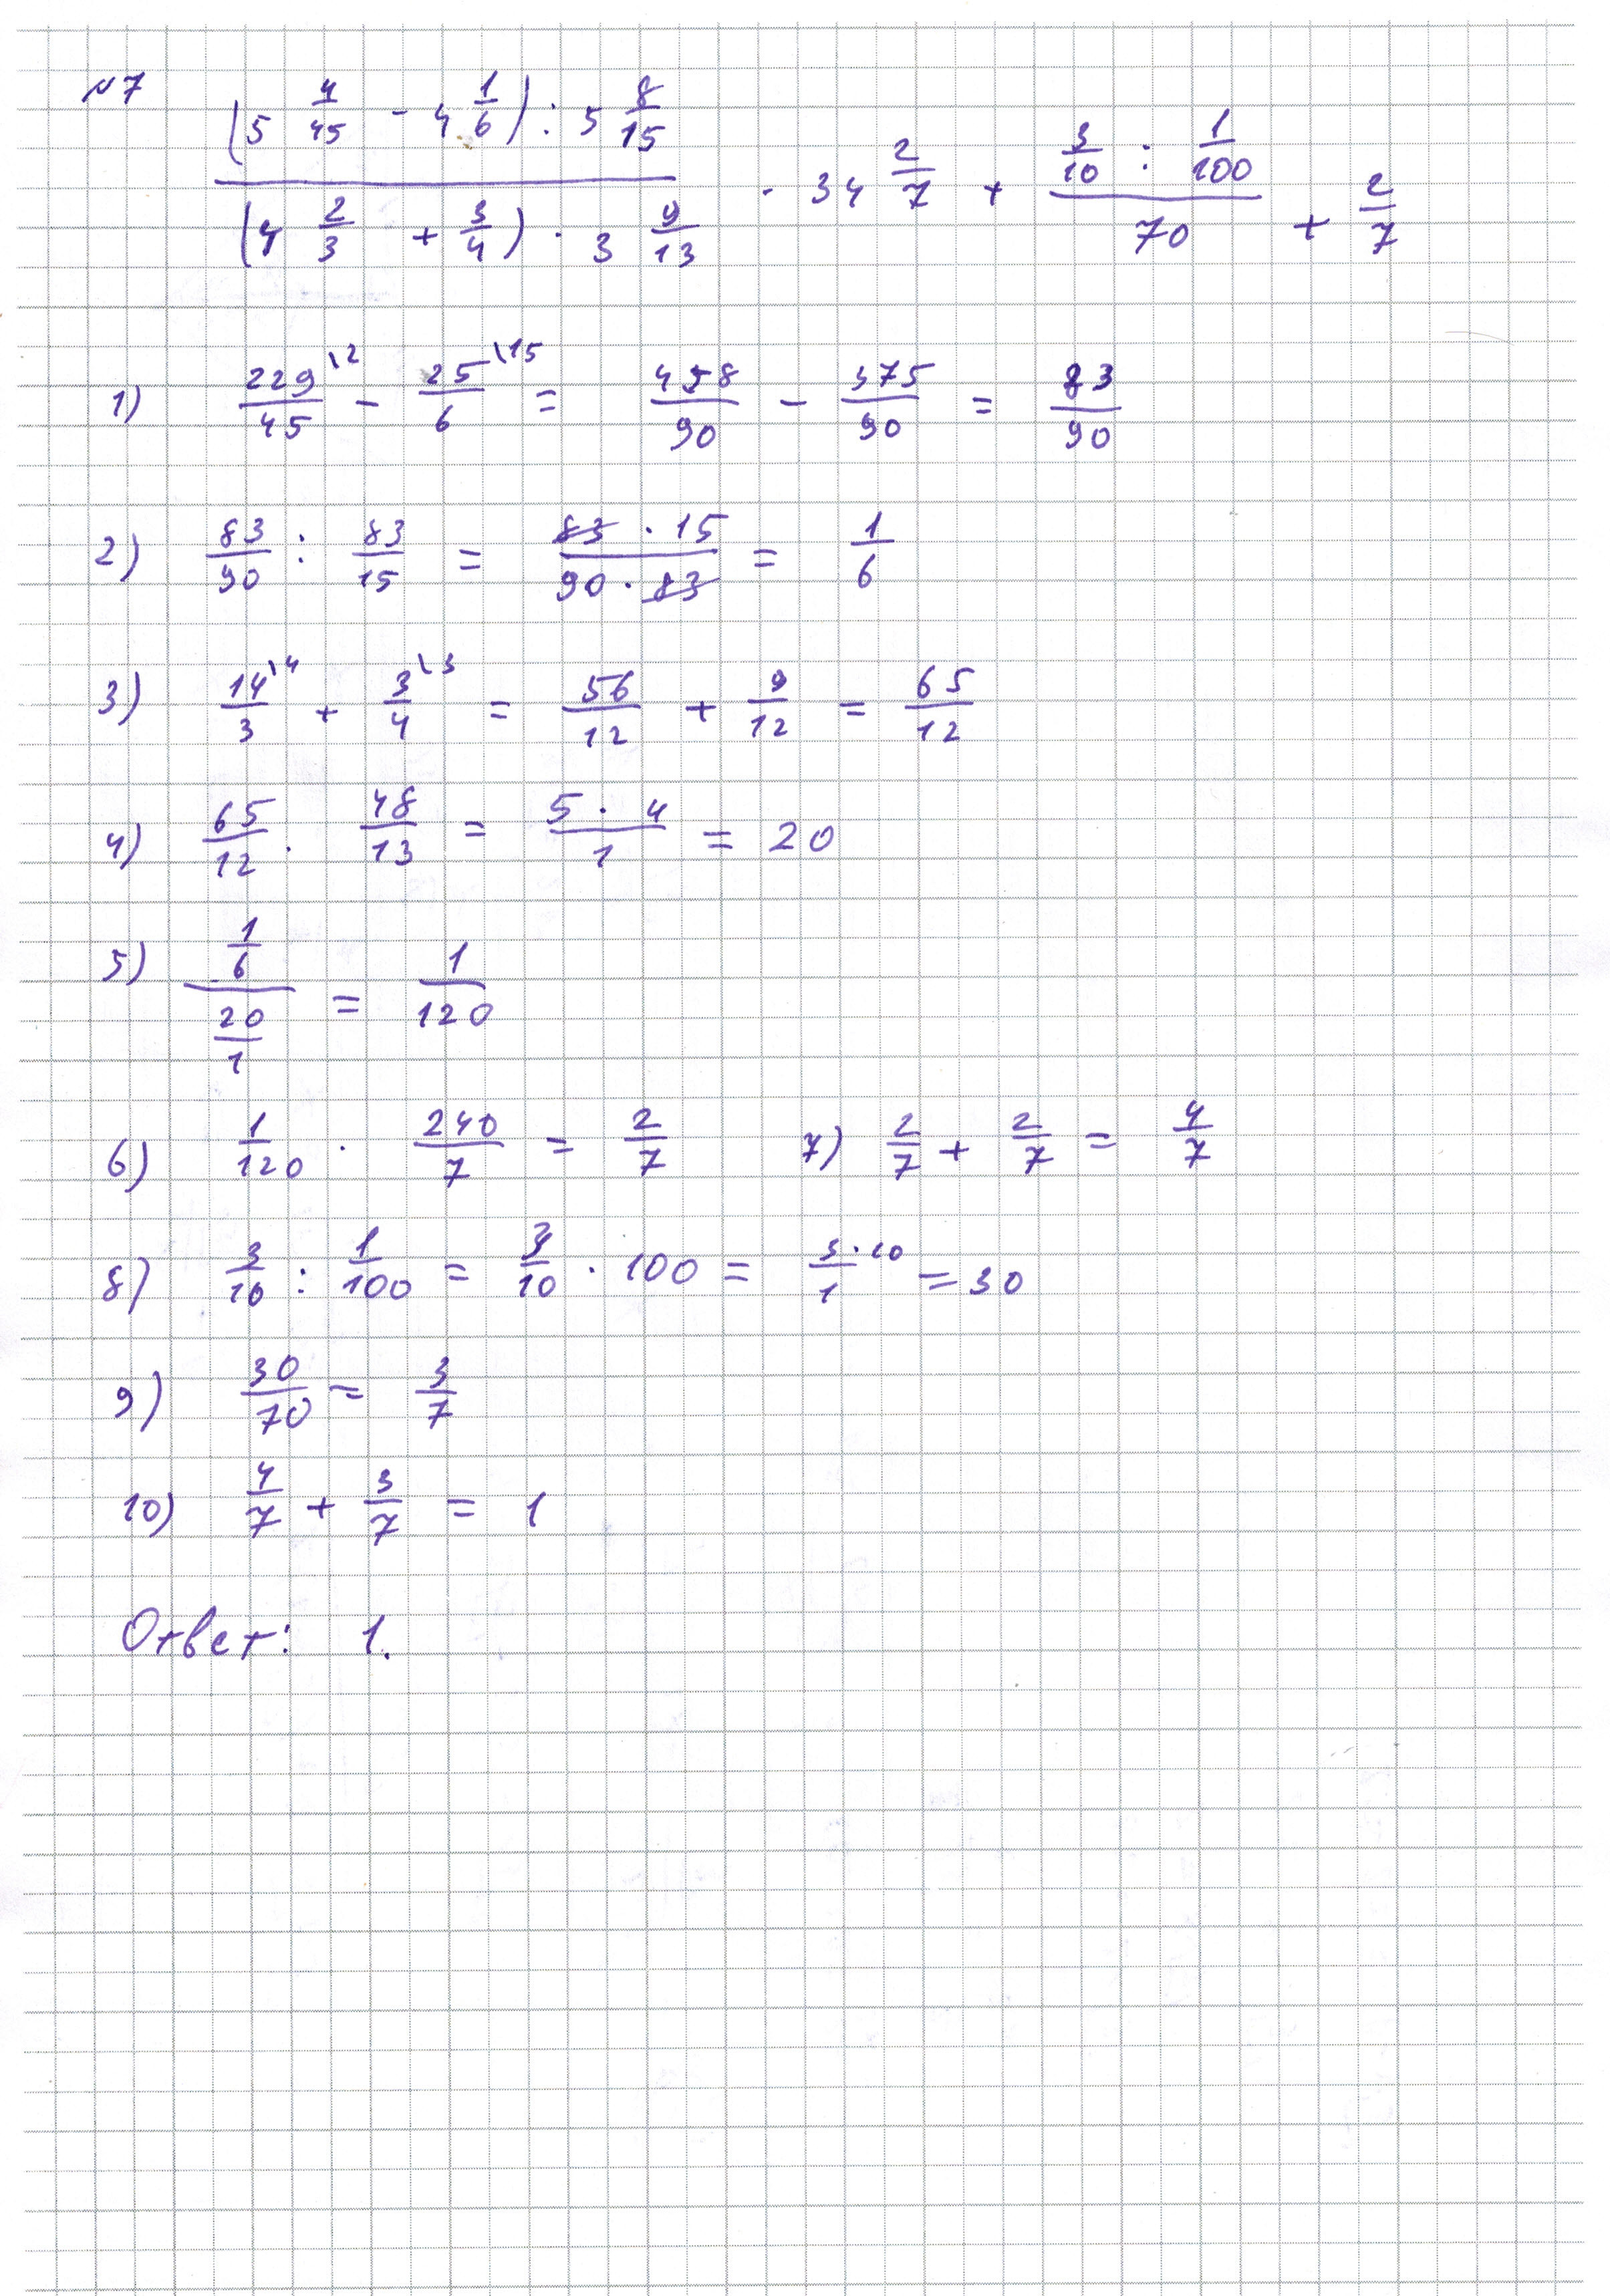 №7 ((5 4/45 - 4 1/6) : 5 8/15) / ((4 2/3 + 3/4) · 3 9/13) · 34 2/7 + (3/10 : 1/100) / 70 + 2/7
1) 229/45 \2 - 25/6 \15 = 458/90 - 375/90 = 83/90
2) 83/90 : 83/15 = 83 · 15 / 90 · 83 = 1/6
3) 14/3 \4 + 3/4 \3 = 56/12 + 9/12 = 65/12
4) 65/12 · 48/13 = 5 · 4 / 1 = 20
5) (1/6) / (20/1) = 1/120
6) 1/120 · 240/7 = 2/7 7) 2/7 + 2/7 = 4/7
8) 3/10 : 1/100 = 3/10 · 100 = 3 · 10 / 1 = 30
9) 30/70 = 3/7
10) 4/7 + 3/7 = 1
Ответ: 1.